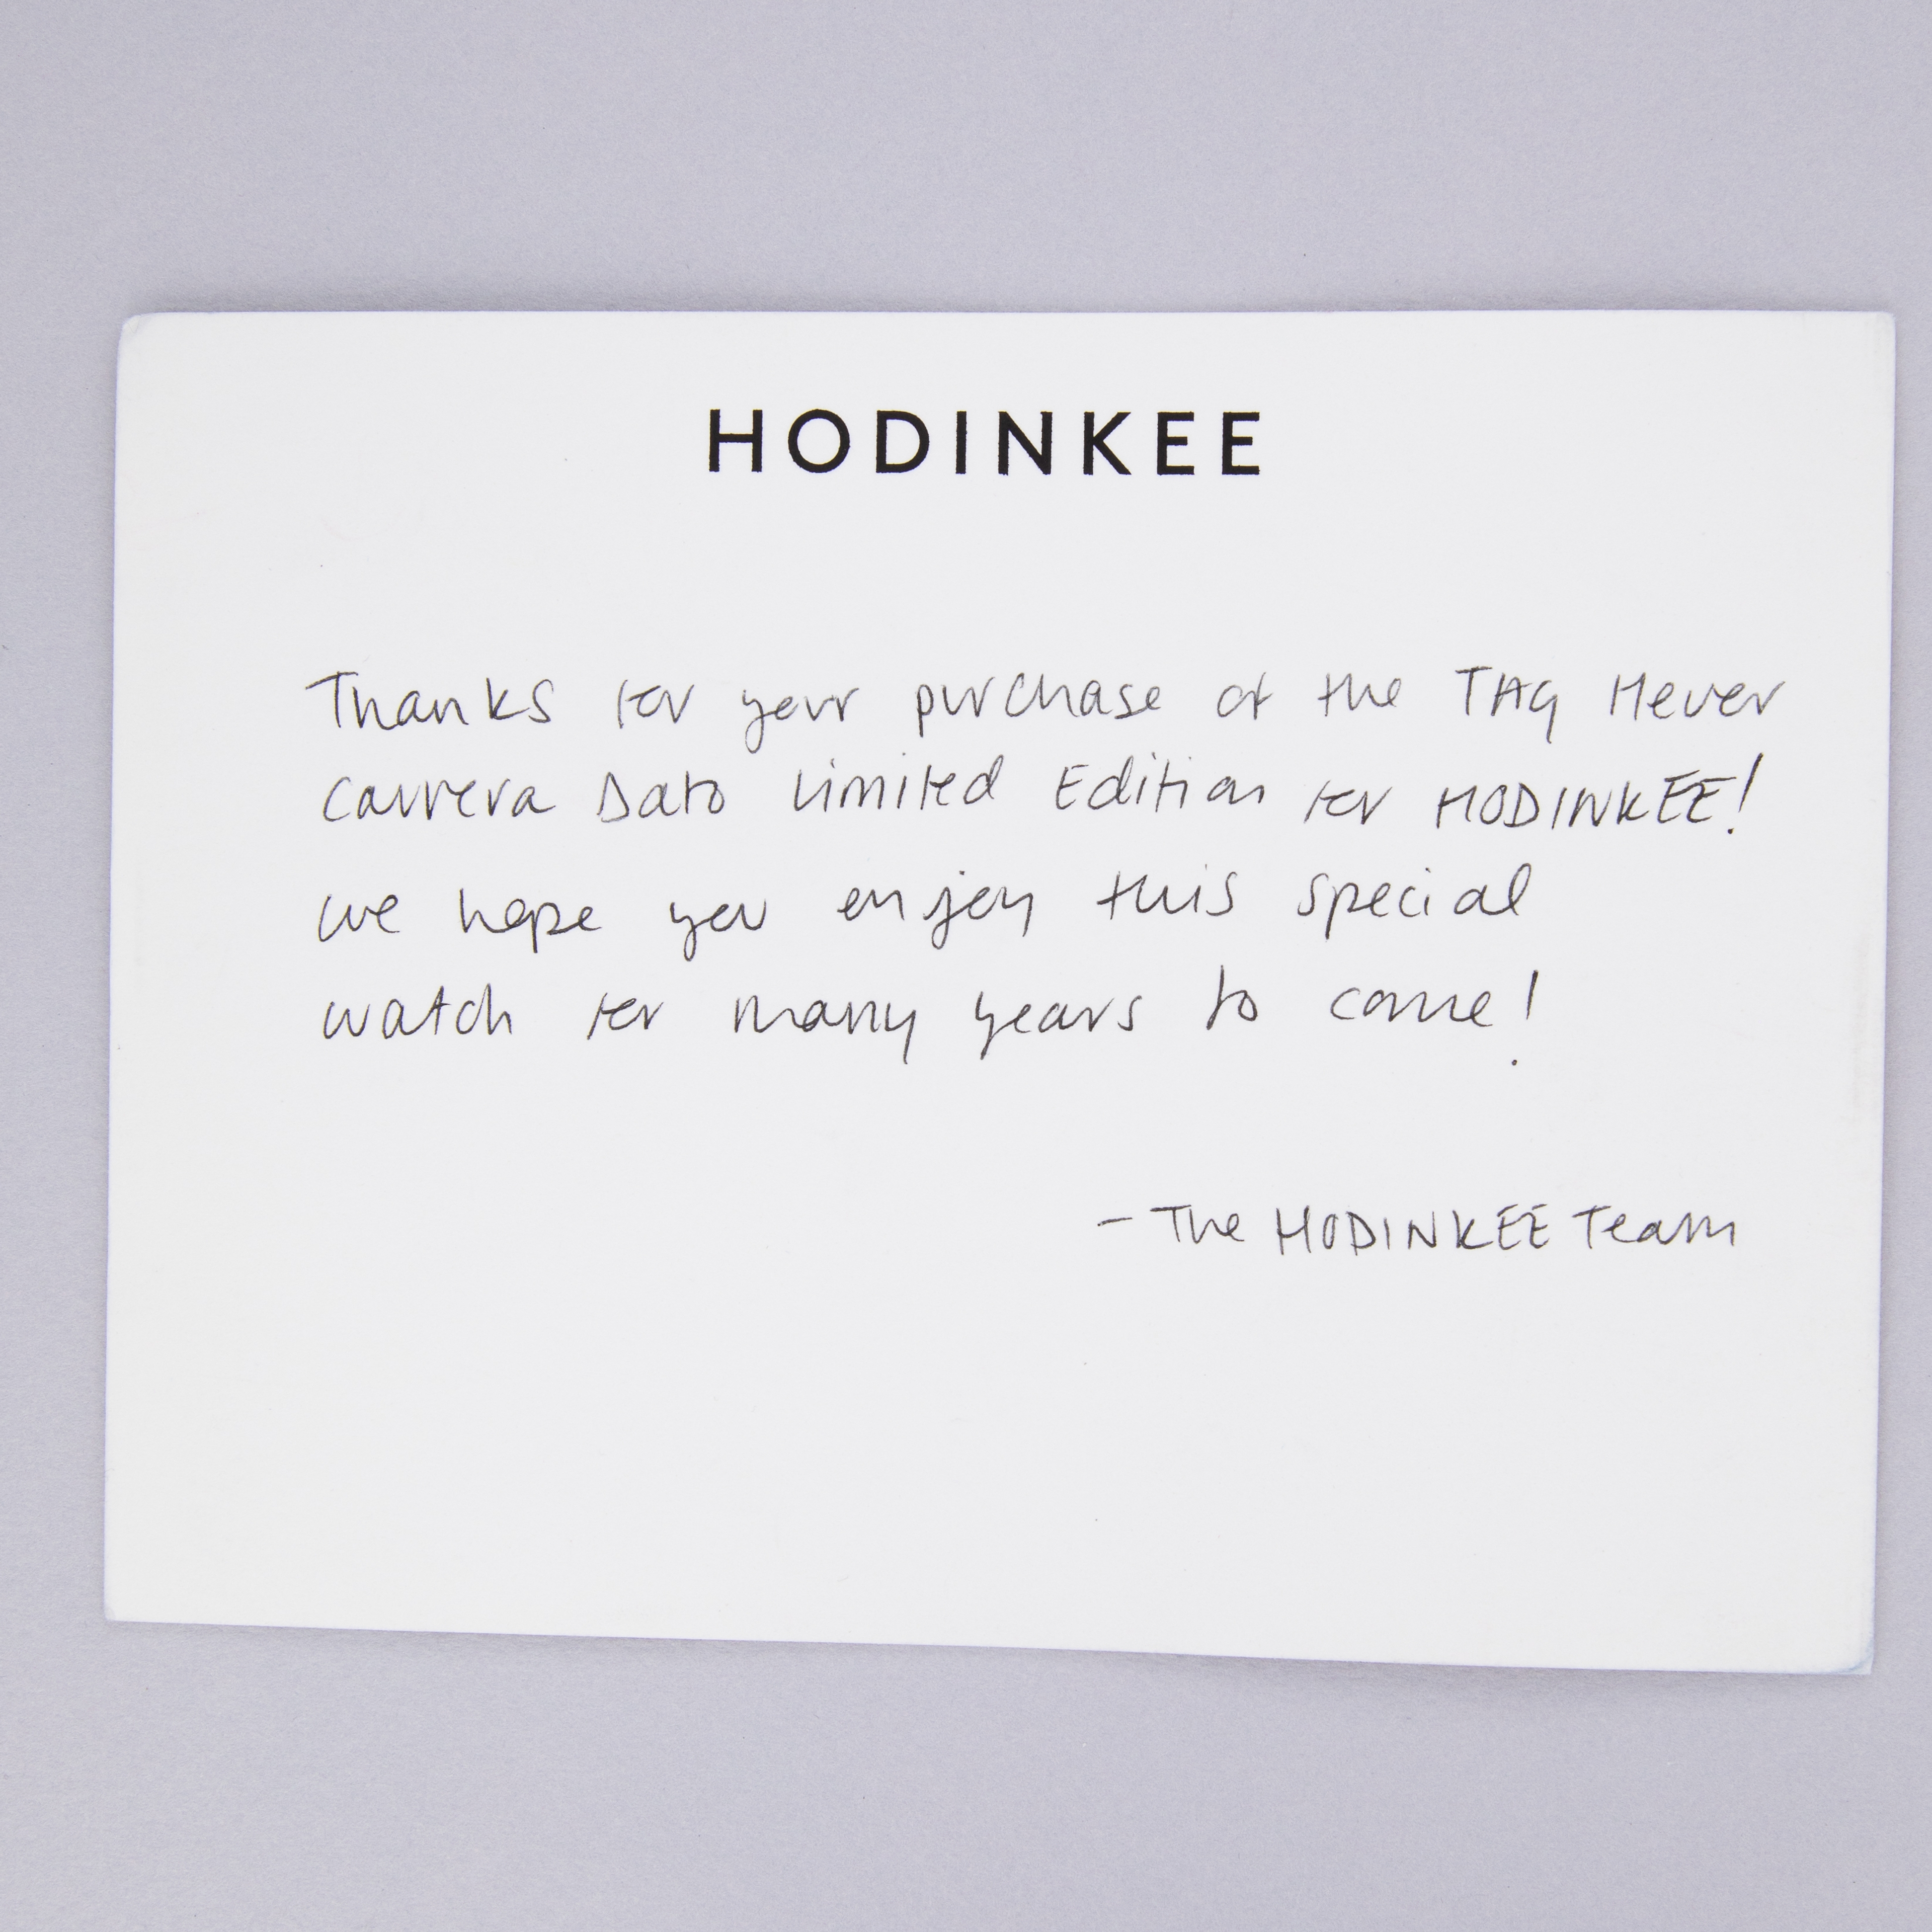 HODINKEE
Thanks for your purchase of the TAG Heuer
Carrera Dato Limited Edition for HODINKEE!
We hope you enjoy this special
watch for many years to come!
- The HODINKEE Team